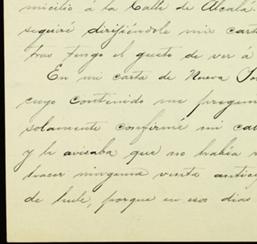 micilio á la Calle de Alcalá
seguiré dirijiéndole mis cart
tras tengo el gusto de ver á
En mi carta de Nueva Yor
cuyo contenido me pregun
solamente confirmé mi ca
y le avisaba que no había
hacer ninguna visita antici
de hule, porque en esos dias